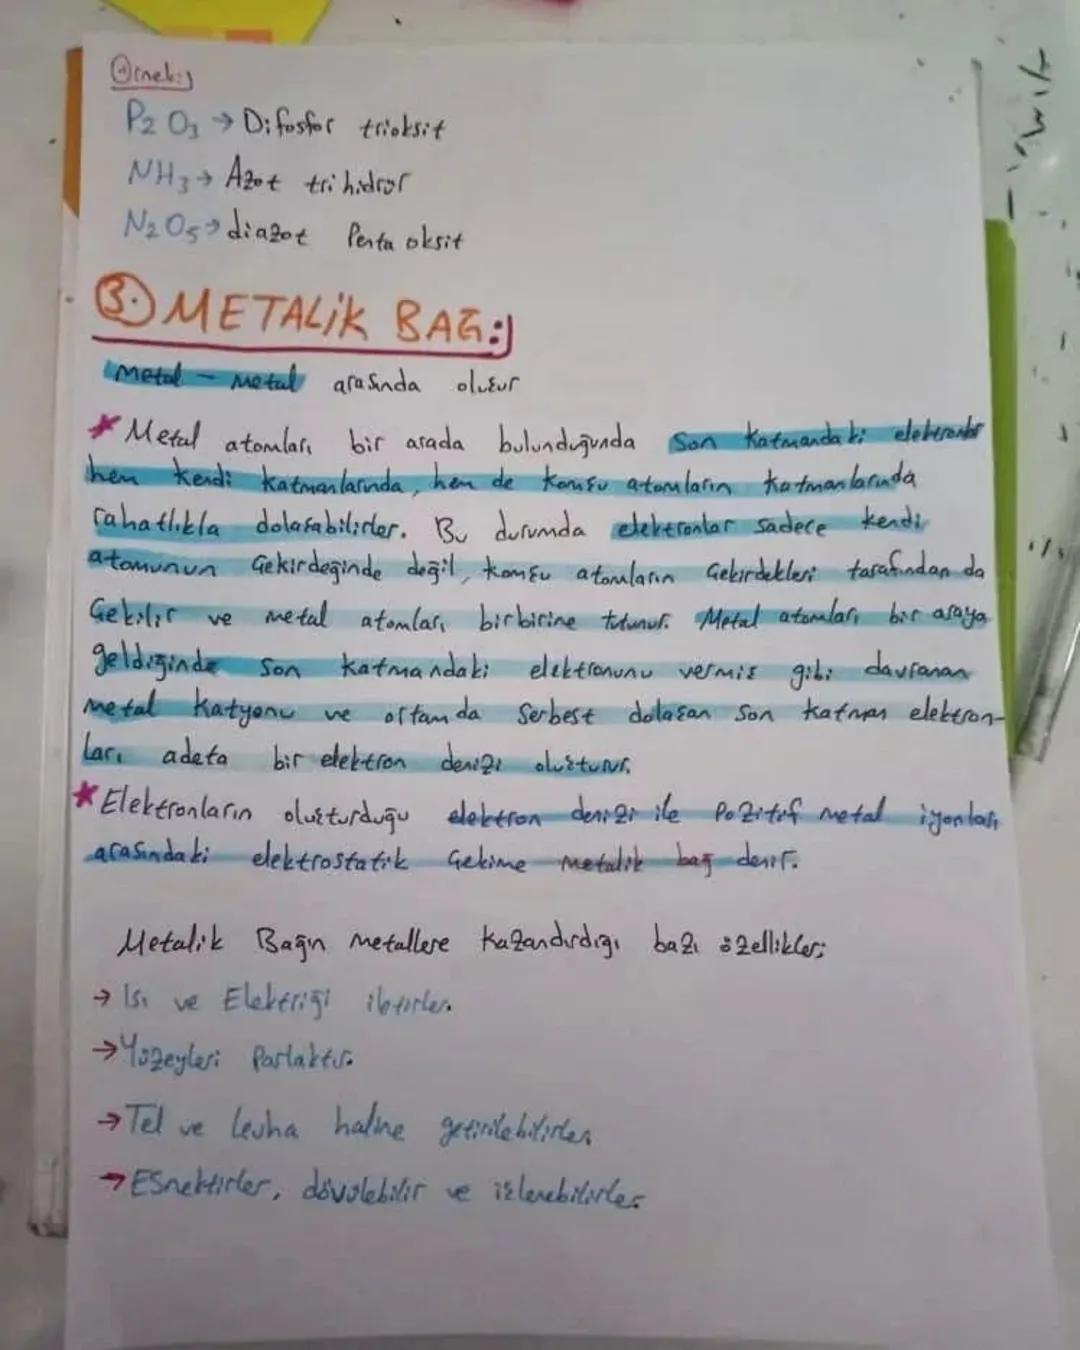 Örnek;
P2O3 → Difosfor trioksit
NH3 → Azot tri hidrür
N2O5 → diazot Penta oksit
3. METALİK BAĞ:
Metal - Metal arasında oluşur
* Metal atomları bir arada bulunduğunda son katmandaki elektronlar
hem kendi katmanlarında, hem de komşu atomların katmanlarında
rahatlıkla dolaşabilirler. Bu durumda elektronlar sadece kendi
atomunun Çekirdeğinde değil, komşu atomların Çekirdekleri tarafından da
Çekilir ve metal atomları birbirine tutunur. Metal atomları bir araya
geldiğinde son katmandaki elektronunu vermiş gibi davranan
metal katyonu ve ortamda Serbest dolaşan son katman elektron-
ları adeta bir elektron denizi oluşturur.
* Elektronların oluşturduğu elektron denizi ile Pozitif metal iyonları
arasındaki elektrostatik Çekime metalik bağ denir.
Metalik Bağın Metallere Kazandırdığı bazı özellikler;
→ Isı ve Elektriği iletirler.
→ Yüzeyleri Parlaktır.
→ Tel ve levha haline getirilebilirler.
→ Esnektirler, dövülebilir ve işlenebilirler.